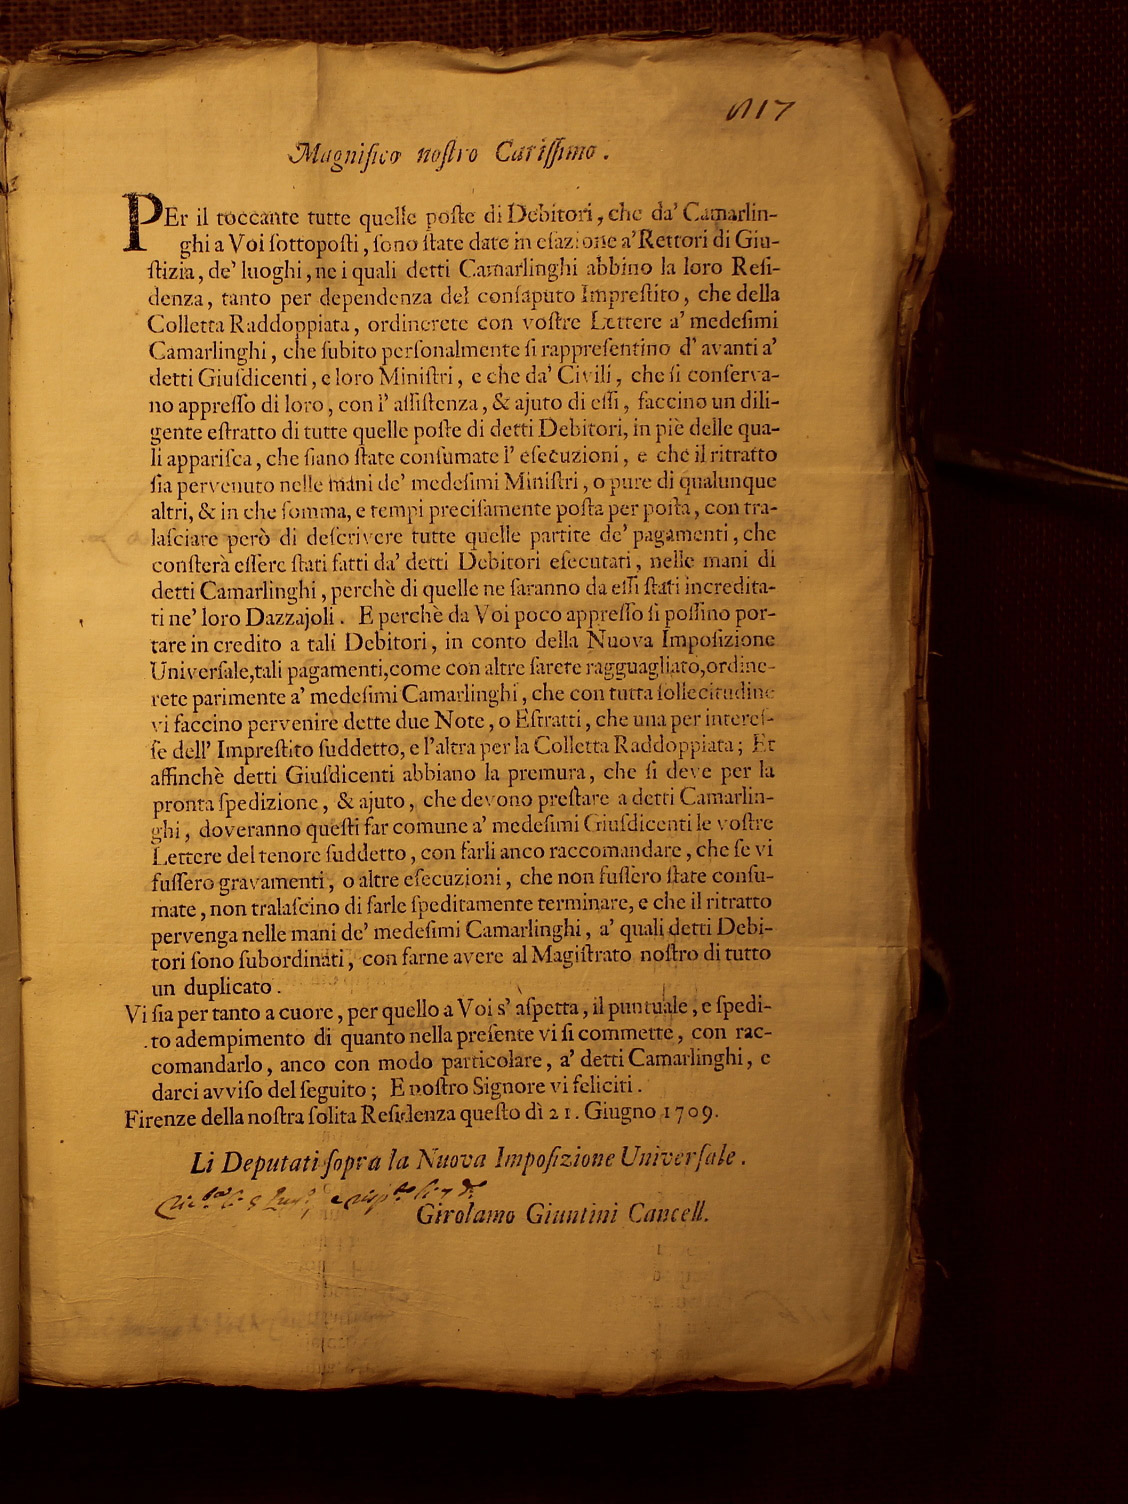 117
Magnifico nostro Carissimo.
PEr il toccante tutte quelle poste di Debitori, che da' Camarlin-
ghi a Voi sottoposti, sono state date in esazione a' Rettori di Giu-
stizia, de' luoghi, ne i quali detti Camarlinghi abbino la loro Resi-
denza, tanto per dependenza del consaputo Imprestito, che della
Colletta Raddoppiata, ordinerete con vostre Lettere a' medesimi
Camarlinghi, che subito personalmente si rappresentino d' avanti a'
detti Giusdicenti, e loro Ministri, e che da' Civili, che si conserva-
no appresso di loro, con l' assistenza, & ajuto di essi, faccino un dili-
gente estratto di tutte quelle poste di detti Debitori, in piè delle qua-
li apparisca, che siano state consumate l' esecuzioni, e che il ritratto
sia pervenuto nelle mani de' medesimi Ministri, o pure di qualunque
altri, & in che somma, e tempi precisamente posta per posta, con tra-
lasciare però di descrivere tutte quelle partite de' pagamenti, che
consterà essere stati fatti da' detti Debitori esecutati, nelle mani di
detti Camarlinghi, perchè di quelle ne saranno da essi stati incredita-
ti ne' loro Dazzajoli. E perchè da Voi poco appresso si possino por-
tare in credito a tali Debitori, in conto della Nuova Imposizione
Universale, tali pagamenti, come con altre sarete ragguagliato, ordine-
rete parimente a' medesimi Camarlinghi, che con tutta sollecitudine
vi faccino pervenire dette due Note, o Estratti, che una per interes-
se dell' Imprestito suddetto, e l'altra per la Colletta Raddoppiata; Et
affinchè detti Giusdicenti abbiano la premura, che si deve per la
pronta spedizione, & ajuto, che devono prestare a detti Camarlin-
ghi, doveranno questi far comune a' medesimi Giusdicenti le vostre
Lettere del tenore suddetto, con farli anco raccomandare, che se vi
fussero gravamenti, o altre esecuzioni, che non fussero state consu-
mate, non tralascino di farle speditamente terminare, e che il ritratto
pervenga nelle mani de' medesimi Camarlinghi, a' quali detti Debi-
tori sono subordinati, con farne avere al Magistrato nostro di tutto
un duplicato.
Vi sia per tanto a cuore, per quello a Voi s' aspetta, il puntuale, e spedi-
to adempimento di quanto nella presente vi si commette, con rac-
comandarlo, anco con modo particolare, a' detti Camarlinghi, e
darci avviso del seguito; E nostro Signore vi feliciti.
Firenze della nostra solita Residenza questo dì 21. Giugno 1709.
Li Deputati sopra la Nuova Imposizione Universale.
Girolamo Giuntini Cancell.